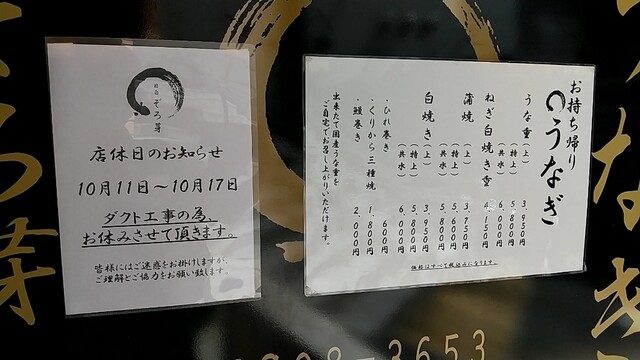 店休日のお知らせ
10月11日～10月17日
ダクト工事の為、
お休みさせて頂きます。
皆様にはご迷惑をお掛けしますが、
ご理解とご協力をお願い致します。
お持ち帰り
うなぎ
うな重（上） 3,950円
（特上） 5,800円
（共水）
ねぎ白焼き重 4,150円
蒲焼（上） 3,750円
（特上） 5,600円
（共水）
白焼き（上） 3,950円
（特上） 5,800円
（共水）
・ひれ巻き 600円
・くりから三種焼 1,800円
・鰻巻き 2,000円
出来たて国産うな重を
ご自宅でお召し上がりいただけます。
価格はすべて税込みになります。
3653